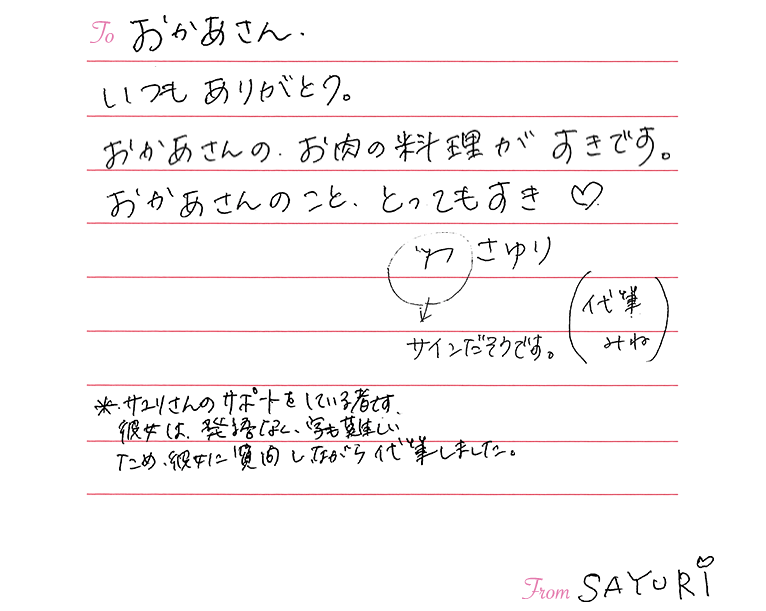 To おかあさん.
いつもありがとう。
おかあさんの、お肉の料理がすきです。
おかあさんのこと、とってもすき♡
さゆり
サインだそうです。
(代筆
みね)
※サユリさんのサポートをしている者です、
彼女は、発語なく、字も難しい
ため、彼女に質問しながら代筆しました。
From SAYURi